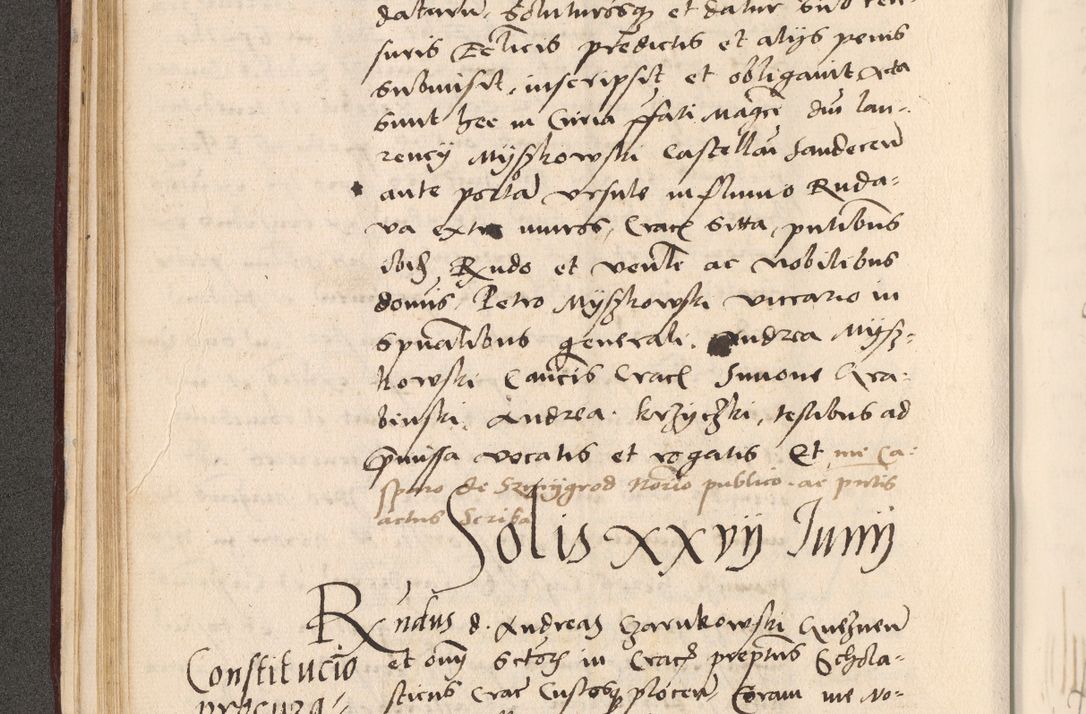 datarum, soluturosq et datur suo cen-
suris Eccl'icis predictis et alijs penis
submisit, inscripsit et obligauit Acta
sunt hec in Curia pfati Magci dni lau-
rencij Myszkowski Castellani Sandecen
ante portam ursule in fluuio Ruda-
va extra muros Crac sitta, pntibus
ibid Rndo et venle ac nobilibus
domis, Petro Myszkowski viccario in
spualibus generali, Andrea Mysz-
kowski Cancis Crac Simone Gra-
binski, Andrea Krzyczki, testibus ad
pmissa vocatis et rogatis Et me Ca-
sparo de Szmijgrod Norio publico ac pntis
actus Scriba
Solis XXVIJ Junij
Rndus d. Andreas Czarnkowski Gnesnen
et omi sctor in Crac preptus Schola-
Constitucio
sticus Crac Custosq plocen Coram me No-
procura-